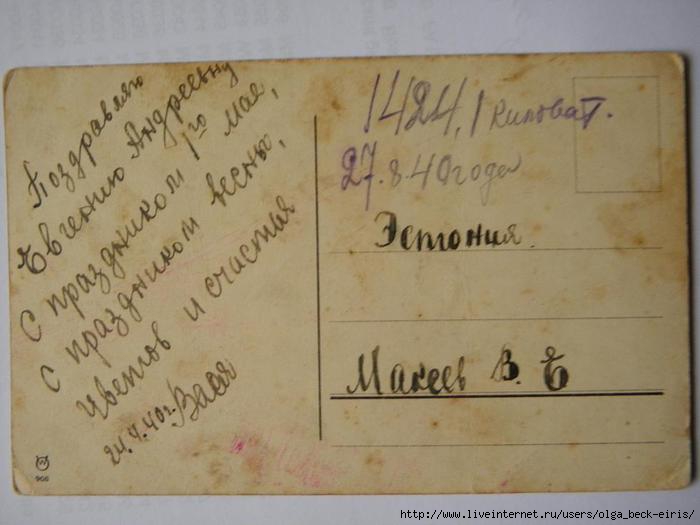 Поздравляю
Евгению Андреевну
С праздником 1го Мае,
С праздником весны,
цветов и счастья
Вася
24.4.40г.
1424,1 Киловат.
27.8.40 года
Эстония
Макеев В. Е
966
http://www.liveinternet.ru/users/olga_beck-eiris/